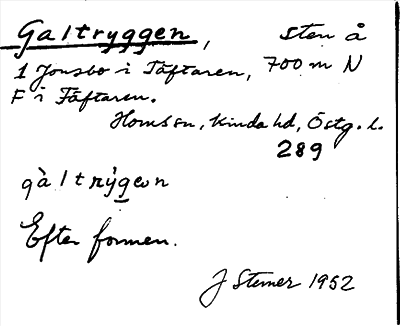 Galtryggen, sten å
1 Jonsbo i Täftaren, 700 m N
F i Täftaren.
Hornssn, Kinda hd, Östg. l.
289
gàltrýgen
Efter formen.
J Sterner 1952